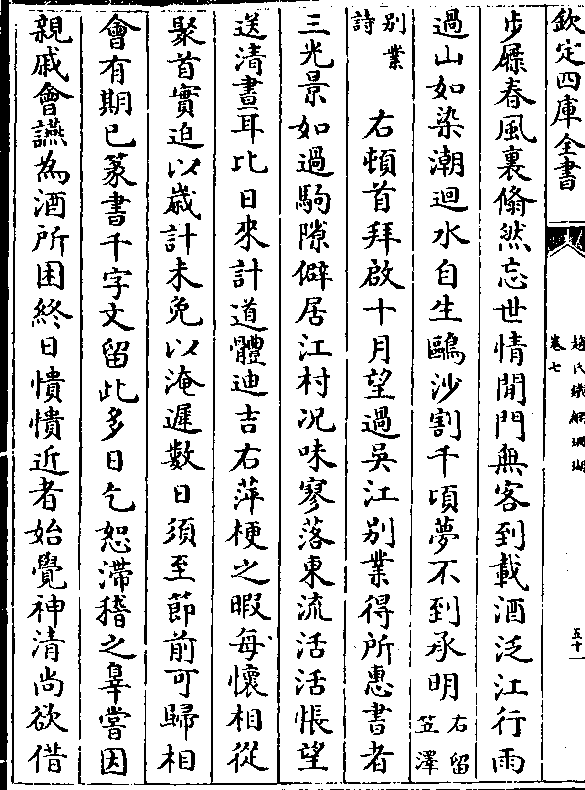 欽定四庫全書
趙氏鐵網珊瑚
卷七
五十一
步屧春風裏翛然忘世情閒門無客到載酒泛江行雨
過山如染潮迴水自生鷗沙割千頃夢不到承明右留笠澤
別業詩　右頓首拜啟十月望過吳江別業得所惠書者
三光景如過駒隙僻居江村况味寥落東流活活悵望
送清晝耳比日來計道體迪吉右萍梗之暇每懷相從
聚首實迫以歲計未免以淹遲數日須至節前可歸相
會有期已篆書千字文留此多日乞恕滯稽之辠嘗因
親戚會讌為酒所困終日憒憒近者始覺神清尚欲借